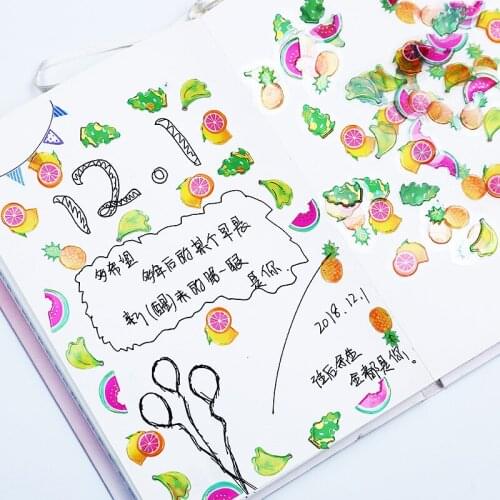 12.1
多希望
多年后的某个早晨
新(醒)来的第一眼
是你.
2018.12.1
往后余生
全都是你。